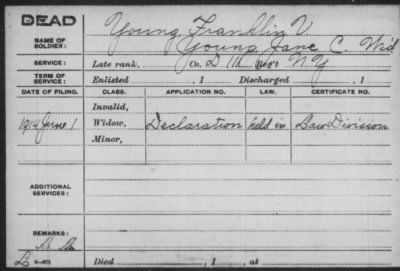 DEAD
Young, Franklin V.
NAME OF SOLDIER: Young, Jane C. Wid
SERVICE: Late rank, Co. D, Regt NY
TERM OF SERVICE: Enlisted , 1 Discharged , 1
DATE OF FILING. CLASS. APPLICATION NO. LAW. CERTIFICATE NO.
Invalid,
1914 June 1 Widow, Declaration held in Law Division
Minor,
ADDITIONAL SERVICES:
REMARKS:
Died , 1 , at